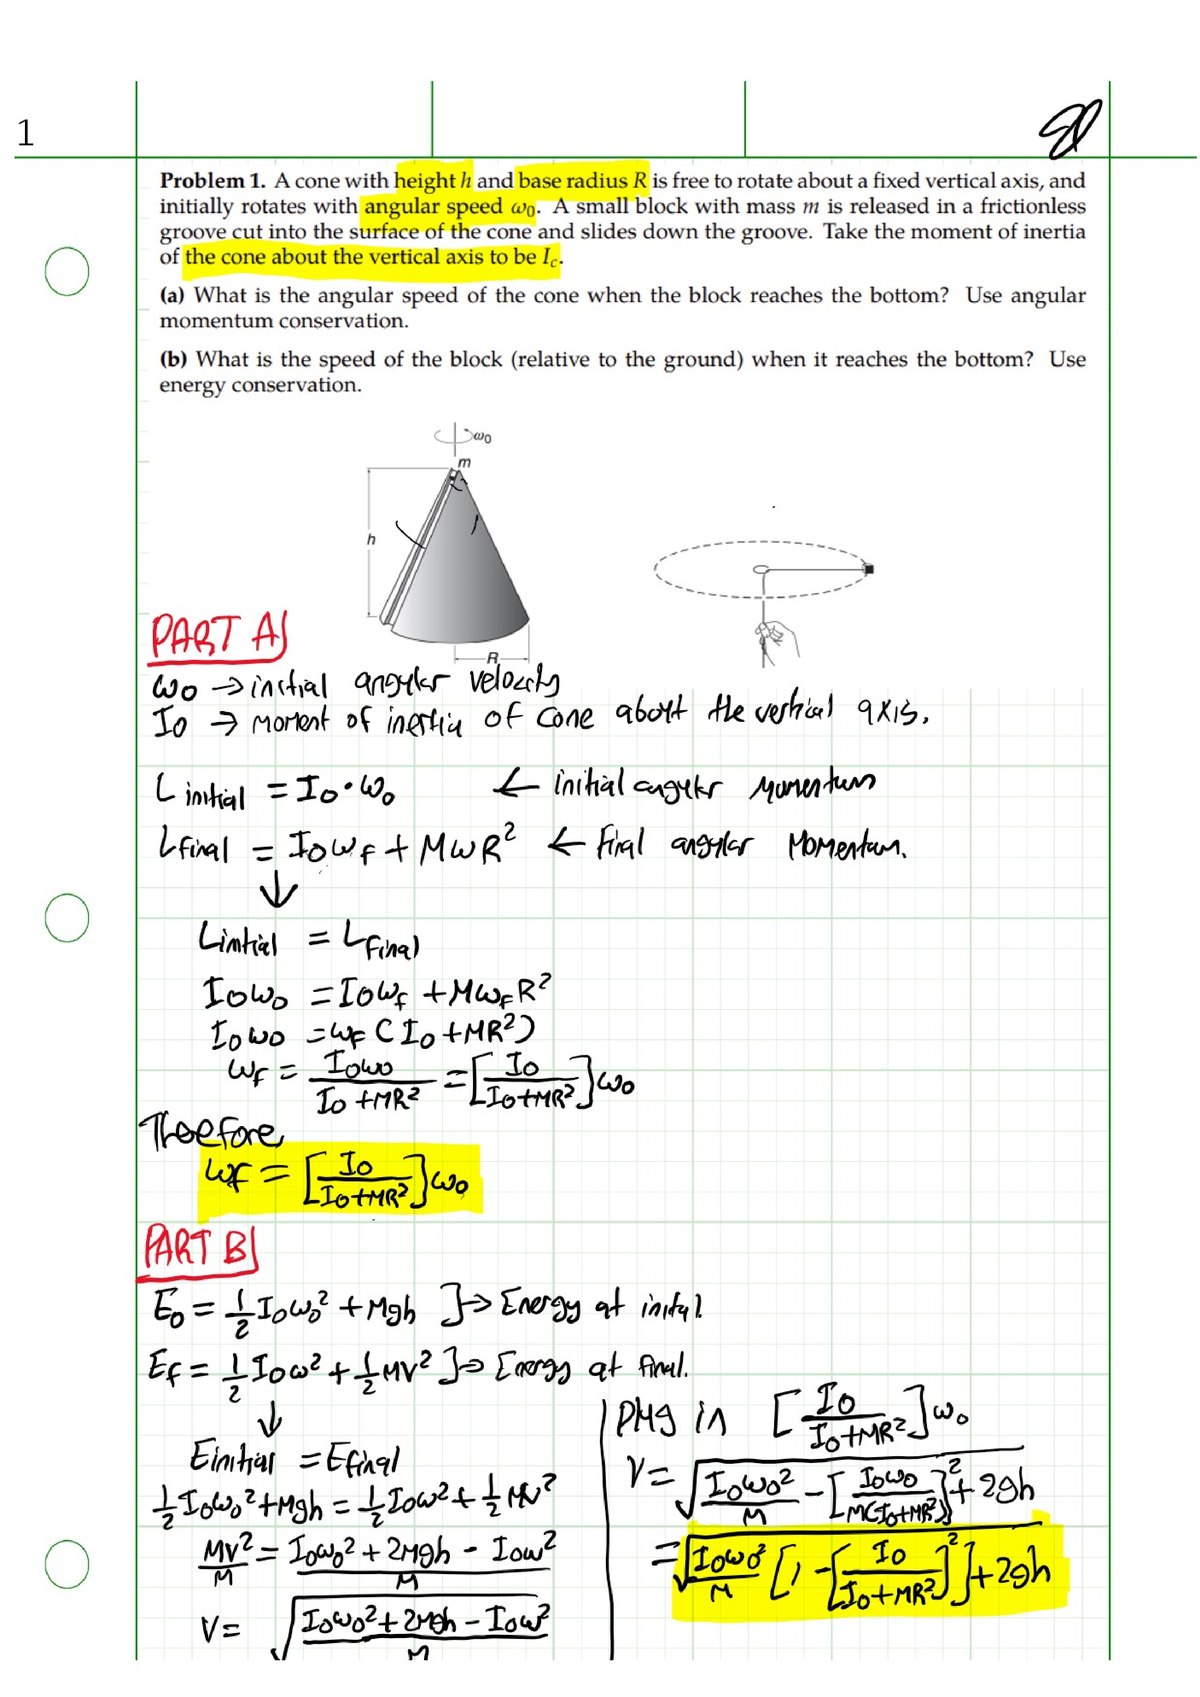 1
Problem 1. A cone with height h and base radius R is free to rotate about a fixed vertical axis, and
initially rotates with angular speed ω₀. A small block with mass m is released in a frictionless
groove cut into the surface of the cone and slides down the groove. Take the moment of inertia
of the cone about the vertical axis to be I_c.
(a) What is the angular speed of the cone when the block reaches the bottom? Use angular
momentum conservation.
(b) What is the speed of the block (relative to the ground) when it reaches the bottom? Use
energy conservation.
ω₀
m
h
R
PART A)
ω₀ → initial angular velocity
I₀ → moment of inertia of cone about the vertical axis.
L initial = I₀·ω₀ ← initial angular momentum
L final = I₀ω_F + MωR² ← Final angular Momentum.
↓
L initial = L Final
I₀ω₀ = I₀ω_F + Mω_F R²
I₀ω₀ = ω_F (I₀ + MR²)
ω_F = I₀ω₀ / (I₀ + MR²) = [I₀ / (I₀ + MR²)] ω₀
Therefore,
ω_F = [I₀ / (I₀ + MR²)] ω₀
PART B)
E₀ = 1/2 I₀ω₀² + Mgh ]→ Energy at inital
E_F = 1/2 I₀ω² + 1/2 MV² ]→ Energy at final.
↓
E initial = E final
1/2 I₀ω₀² + Mgh = 1/2 I₀ω² + 1/2 MV²
MV²/M = (I₀ω₀² + 2Mgh - I₀ω²)/M
V = √((I₀ω₀² + 2Mgh - I₀ω²)/M)
Plug in [I₀ / (I₀ + MR²)] ω₀
V = √(I₀ω₀²/M - [I₀ω₀ / (M(I₀ + MR²))]² + 2gh)
= √(I₀ω₀²/M [1 - [I₀ / (I₀ + MR²)]²] + 2gh)